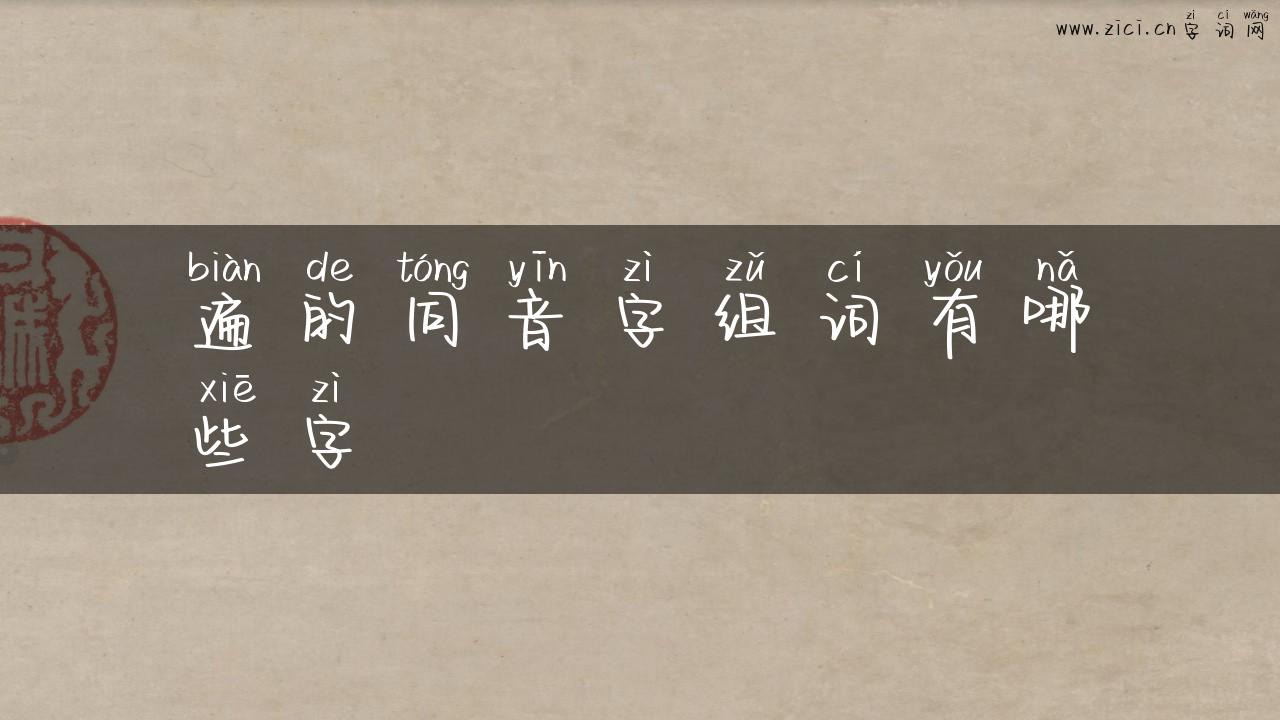 zì cí wǎng
www.zici.cn 字词网
biàn de tóng yīn zì zǔ cí yǒu nǎ
遍的同音字组词有哪
xiē zì
些字